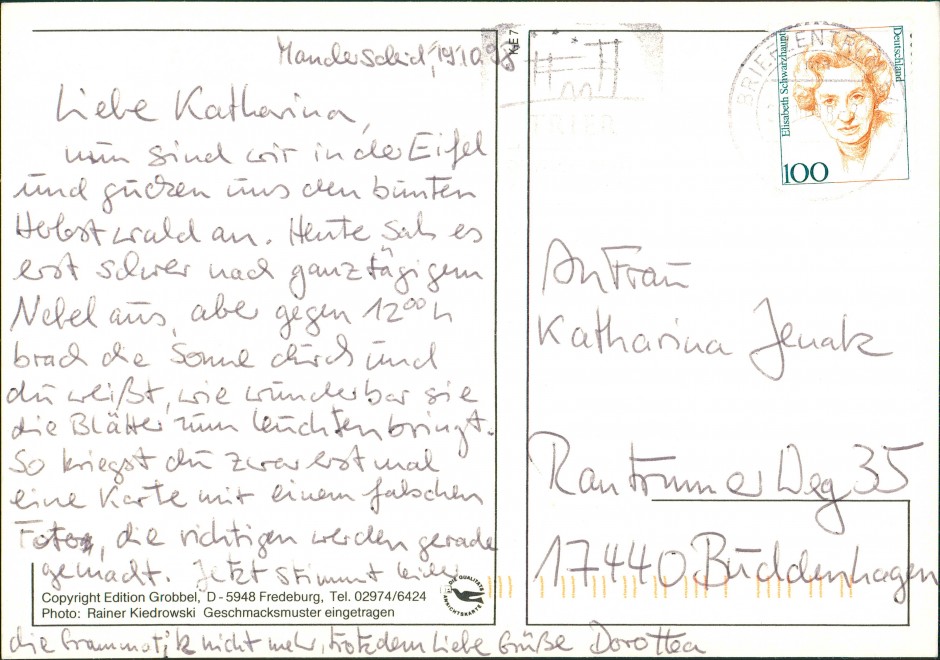 Manderscheid, 19.10.98
Liebe Katharina,
nun sind wir in der Eifel
und gucken uns den bunten
Herbstwald an. Heute sah es
erst schwer nach ganztägigem
Nebel aus, aber gegen 12⁰⁰ h
brach die Sonne durch und
du weißt, wie wunderbar sie
die Blätter zum leuchten bringt.
So kriegst du zwar erst mal
eine Karte mit einem falschen
Foto, die richtigen werden gerade
gemacht. Jetzt stimmt leider
die Grammatik nicht mehr, trotzdem liebe Grüße Dorottea
Copyright Edition Grobbel, D-5948 Fredeburg, Tel. 02974/6424
Photo: Rainer Kiedrowski Geschmacksmuster eingetragen
DIE QUALITÄTS ANSICHTSKARTE
K+E 7
TRIER
BRIEFZENTRUM
Elisabeth Schwarzhaupt
Deutschland
100
An Frau
Katharina
Rantrumer Weg 35
17440 Buddenhagen